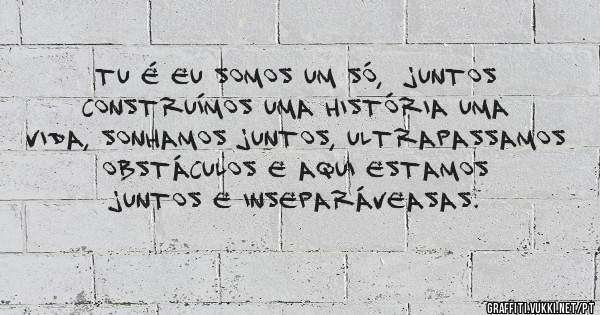 TU É EU SOMOS UM SÓ, JUNTOS
CONSTRUÍMOS UMA HISTÓRIA UMA
VIDA, SONHAMOS JUNTOS, ULTRAPASSAMOS
OBSTÁCULOS E AQUI ESTAMOS
JUNTOS E INSEPARÁVEASAS.
GRAFFITI.VUKKI.NET/PT